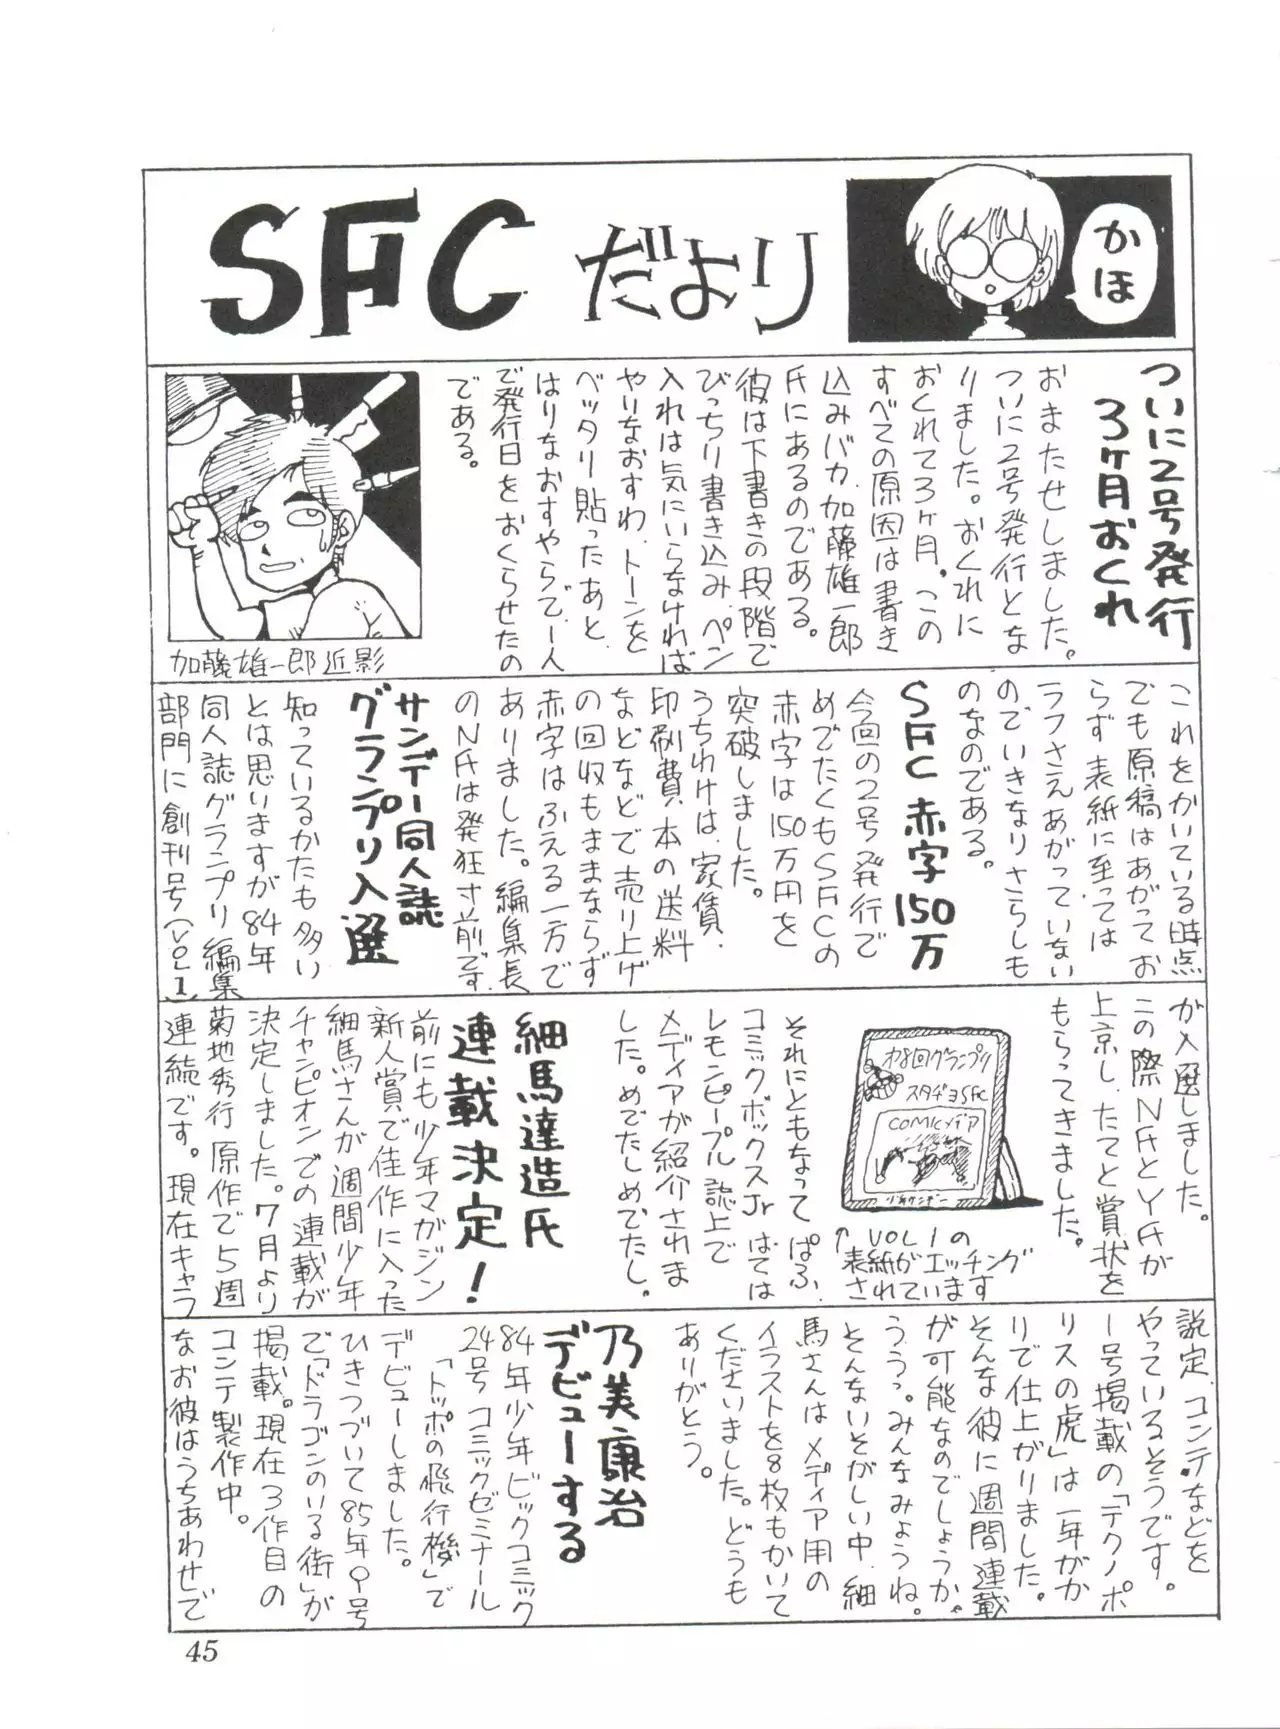 SFCだより
かほ
ついに2号発行
3ヶ月おくれ
おまたせしました。
ついに2号発行とな
りました。おくれに
おくれて3ヶ月。この
すべての原因は書き
込みバカ加藤雄一郎
氏にあるのである。
彼は下書きの段階で
びっちり書き込み、ペン
入れは気にいらなければ
やりなおすわ、トーンを
ベッタリ貼ったあと、
はりなおすやらで、一人
で発行日をおくらせたの
である。
加藤雄一郎近影
これをかいている時点
でも原稿はあがってお
らず表紙に至っては
ラフさえあがっていない
ので、いきなりさらしも
のなのである。
SFC赤字150万
今回の2号発行で
めでたくもSFCの
赤字は150万円を
突破しました。
うちわけは、家賃、
印刷費、本の送料
などなどで売り上げ
の回収もままならず
赤字はふえる一方で
ありました。編集長
のN氏は発狂寸前です。
サンデー同人誌
グランプリ入選
知っているかたも多い
とは思いますが84年
同人誌グランプリ編集
部門に創刊号(VOL1)
が入選しました。
この際N氏とY氏が
上京し、たてと賞状を
もらってきました。
才8回グランプリ
スタヂヨSFC
COMICメディア
少年サンデー
↑VOL1の
表紙がエッチング
されています
それにともなって、ぱふ、
コミックボックスJr はては
レモンピープル誌上で
メディアが紹介されま
した。めでたしめでたし。
細馬達造氏
連載決定!
前にも少年マガジン
新人賞で佳作に入った
細馬さんが週間少年
チャンピオンでの連載が
決定しました。7月より
菊地秀行原作で5週
連続です。現在キャラ
設定、コンテなどを
やっているそうです。
1号掲載の「テクノポ
リスの虎」は一年がか
りで仕上がりました。
そんな彼に週間連載
が可能なのでしょうか。
ううう。みんなみようね。
そんないそがしい中、細
馬さんはメディア用の
イラストを8枚もかいて
くださいました。どうも
ありがとう。
乃美康治
デビューする
84年少年ビックコミック
24号コミックゼミナール
「トッポの飛行機」で
デビューしました。
ひきつづいて85年9号
で「ドラゴンのいる街」が
掲載。現在3作目の
コンテ製作中。
なお彼はうちあわせで
45